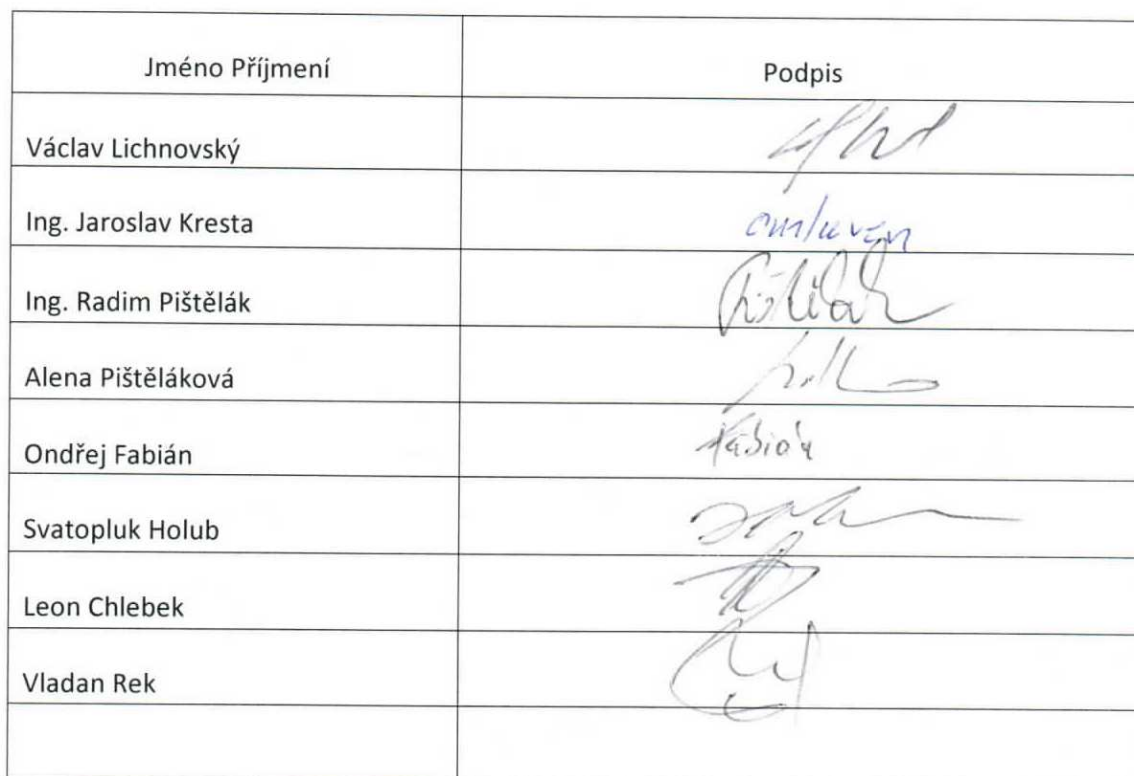 Jméno Příjmení
Podpis
Václav Lichnovský
Ing. Jaroslav Kresta
omluven
Ing. Radim Pištělák
Alena Pištěláková
Ondřej Fabián
Fabián
Svatopluk Holub
Leon Chlebek
Vladan Rek